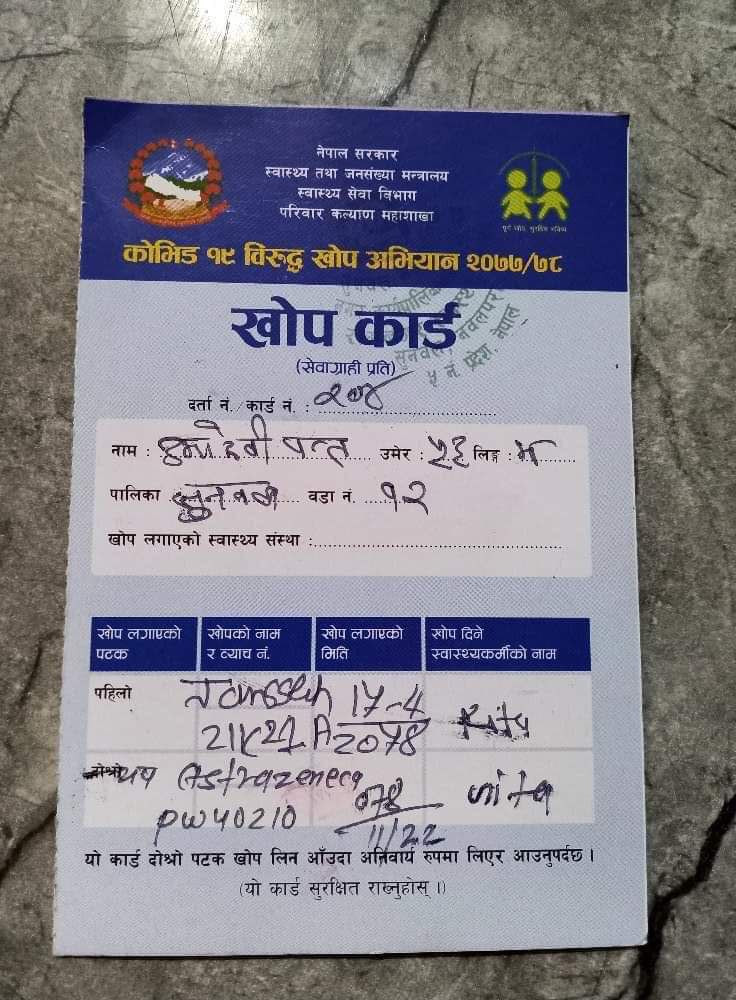 नेपाल सरकार
स्वास्थ्य तथा जनसंख्या मन्त्रालय
स्वास्थ्य सेवा विभाग
परिवार कल्याण महाशाखा
कोभिड १९ विरुद्ध खोप अभियान २०७७/७८
खोप कार्ड
(सेवाग्राही प्रति)
सुनवल, नवलपरासी
५ नं. प्रदेश, नेपाल
दर्ता नं./कार्ड नं. : २०४
नाम : देवी पन्त उमेर : ५६ लिङ्ग : म
पालिका सुनवल वडा नं. १२
खोप लगाएको स्वास्थ्य संस्था :
खोप लगाएको पटक खोपको नाम र व्याच नं. खोप लगाएको मिति खोप दिने स्वास्थ्यकर्मीको नाम
पहिलो Janssen 17-4
2078 Rita
Astrazeneca 078
PW40210 11/22
यो कार्ड दोश्रो पटक खोप लिन आँउदा अनिवार्य रुपमा लिएर आउनुपर्दछ ।
(यो कार्ड सुरक्षित राख्नुहोस् ।)